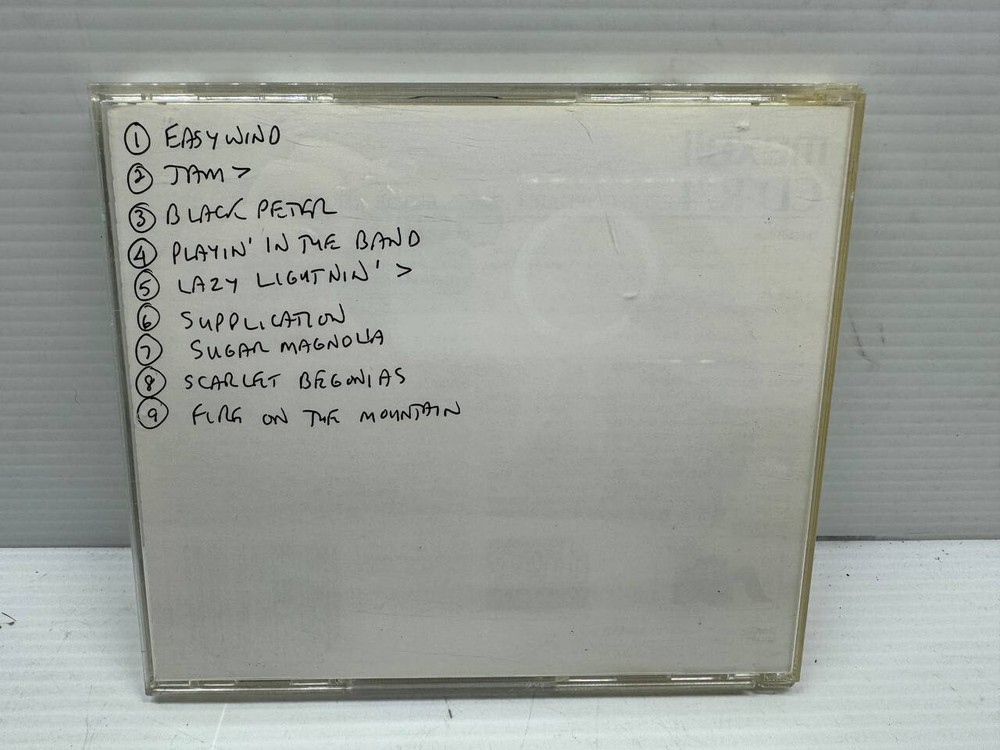 ① EASY WIND
② JAM >
③ BLACK PETER
④ PLAYIN' IN THE BAND
⑤ LAZY LIGHTNIN' >
⑥ SUPPLICATION
⑦ SUGAR MAGNOLIA
⑧ SCARLET BEGONIAS
⑨ FIRE ON THE MOUNTAIN
maxell